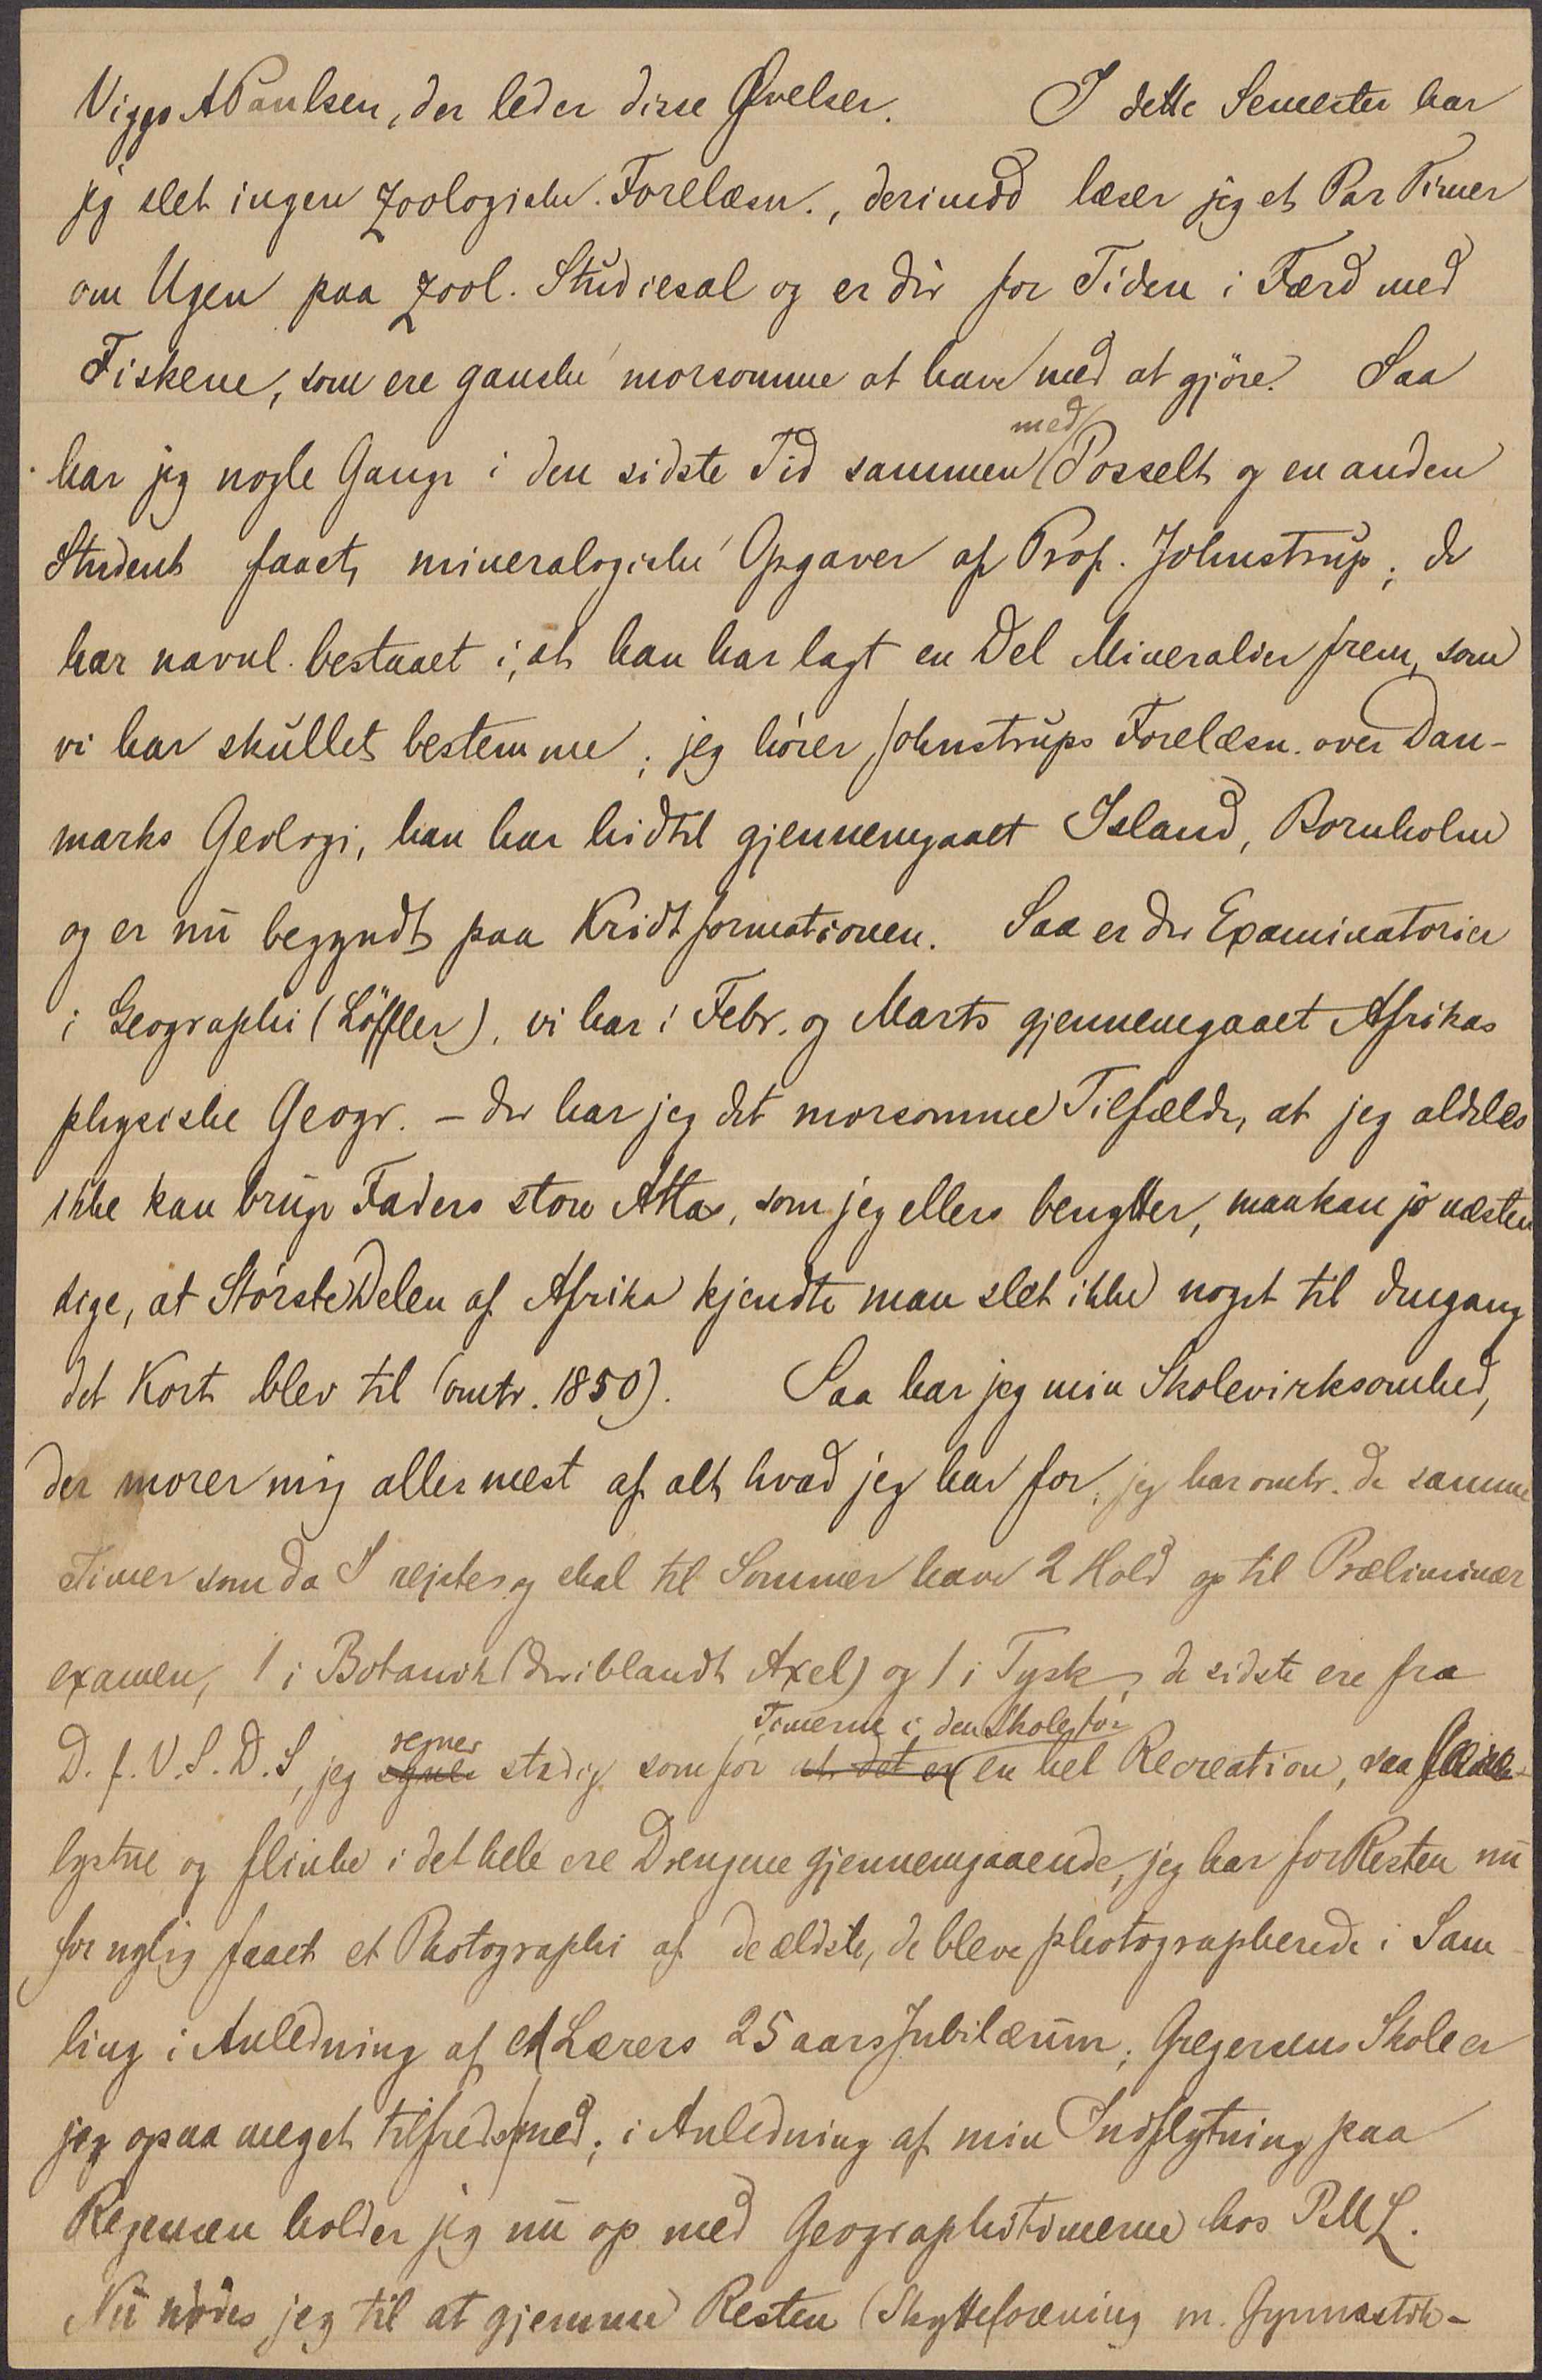 Viggo A Poulsen, der leder disse Øvelser. I dette Semester har
jeg slet ingen zoologiske Forelæsn., derimod læser jeg et Par Timer
om Ugen paa zool. Studiesal og er der for Tiden i Færd med
Fiskene, som ere ganske morsomme at have med at gjöre. Saa
har jeg nogle Gange i den sidste Tid sammen med Posselt og en anden
Student faaet mineralogiske Opgaver af Prof. Johnstrup; de
har navnl. bestaaet i, at han har lagt en Del Mineralier frem, som
vi har skullet bestemme; jeg hører Johnstrups Forelæsn. over Dan-
marks Geologi, han har hidtil gjennemgaaet Island, Bornholm
og er nu begyndt paa Kridtformationen. Saa er der Examinatorier
i Geographi (Löffler), vi har i Febr. og Marts gjennemgaaet Afrikas
physiske Geogr. – der har jeg det morsomme Tilfælde, at jeg aldeles
ikke kan bruge Faders store Atlas, som jeg ellers benytter, man kan jo næsten
sige, at Største Delen af Afrika kjendte man slet ikke noget til dengang
det Kort blev til (omtr. 1850). Saa har jeg min Skolevirksomhed,
der morer mig allermest af alt hvad jeg har for, jeg har omtr. de samme
Timer som da I rejste og skal til Sommer have 2 Hold op til Præliminær
examen, 1 i Botanik (deriblandt Axel) og 1 i Tysk, de sidste ere fra
D. f. V. S. D. S, jeg regner stadig som før Timerne i den Skole for en hel Recreation, saa
lystne og flinke i det hele ere Drengene gjennemgaaende, jeg har for Resten nu
for nylig faaet et Photographi af de ældste, de bleve photographerede i Sam-
ling i Anledning af en Lærers 25 aars Jubilæum; Gregersens Skole er
jeg ogsaa meget tilfreds med; i Anledning af min Indflytning paa
Regensen holder jeg nu op med Geographitimerne hos PML.
Nu nødes jeg til at gjemme Resten (Skytteforening m. Gymnastik-